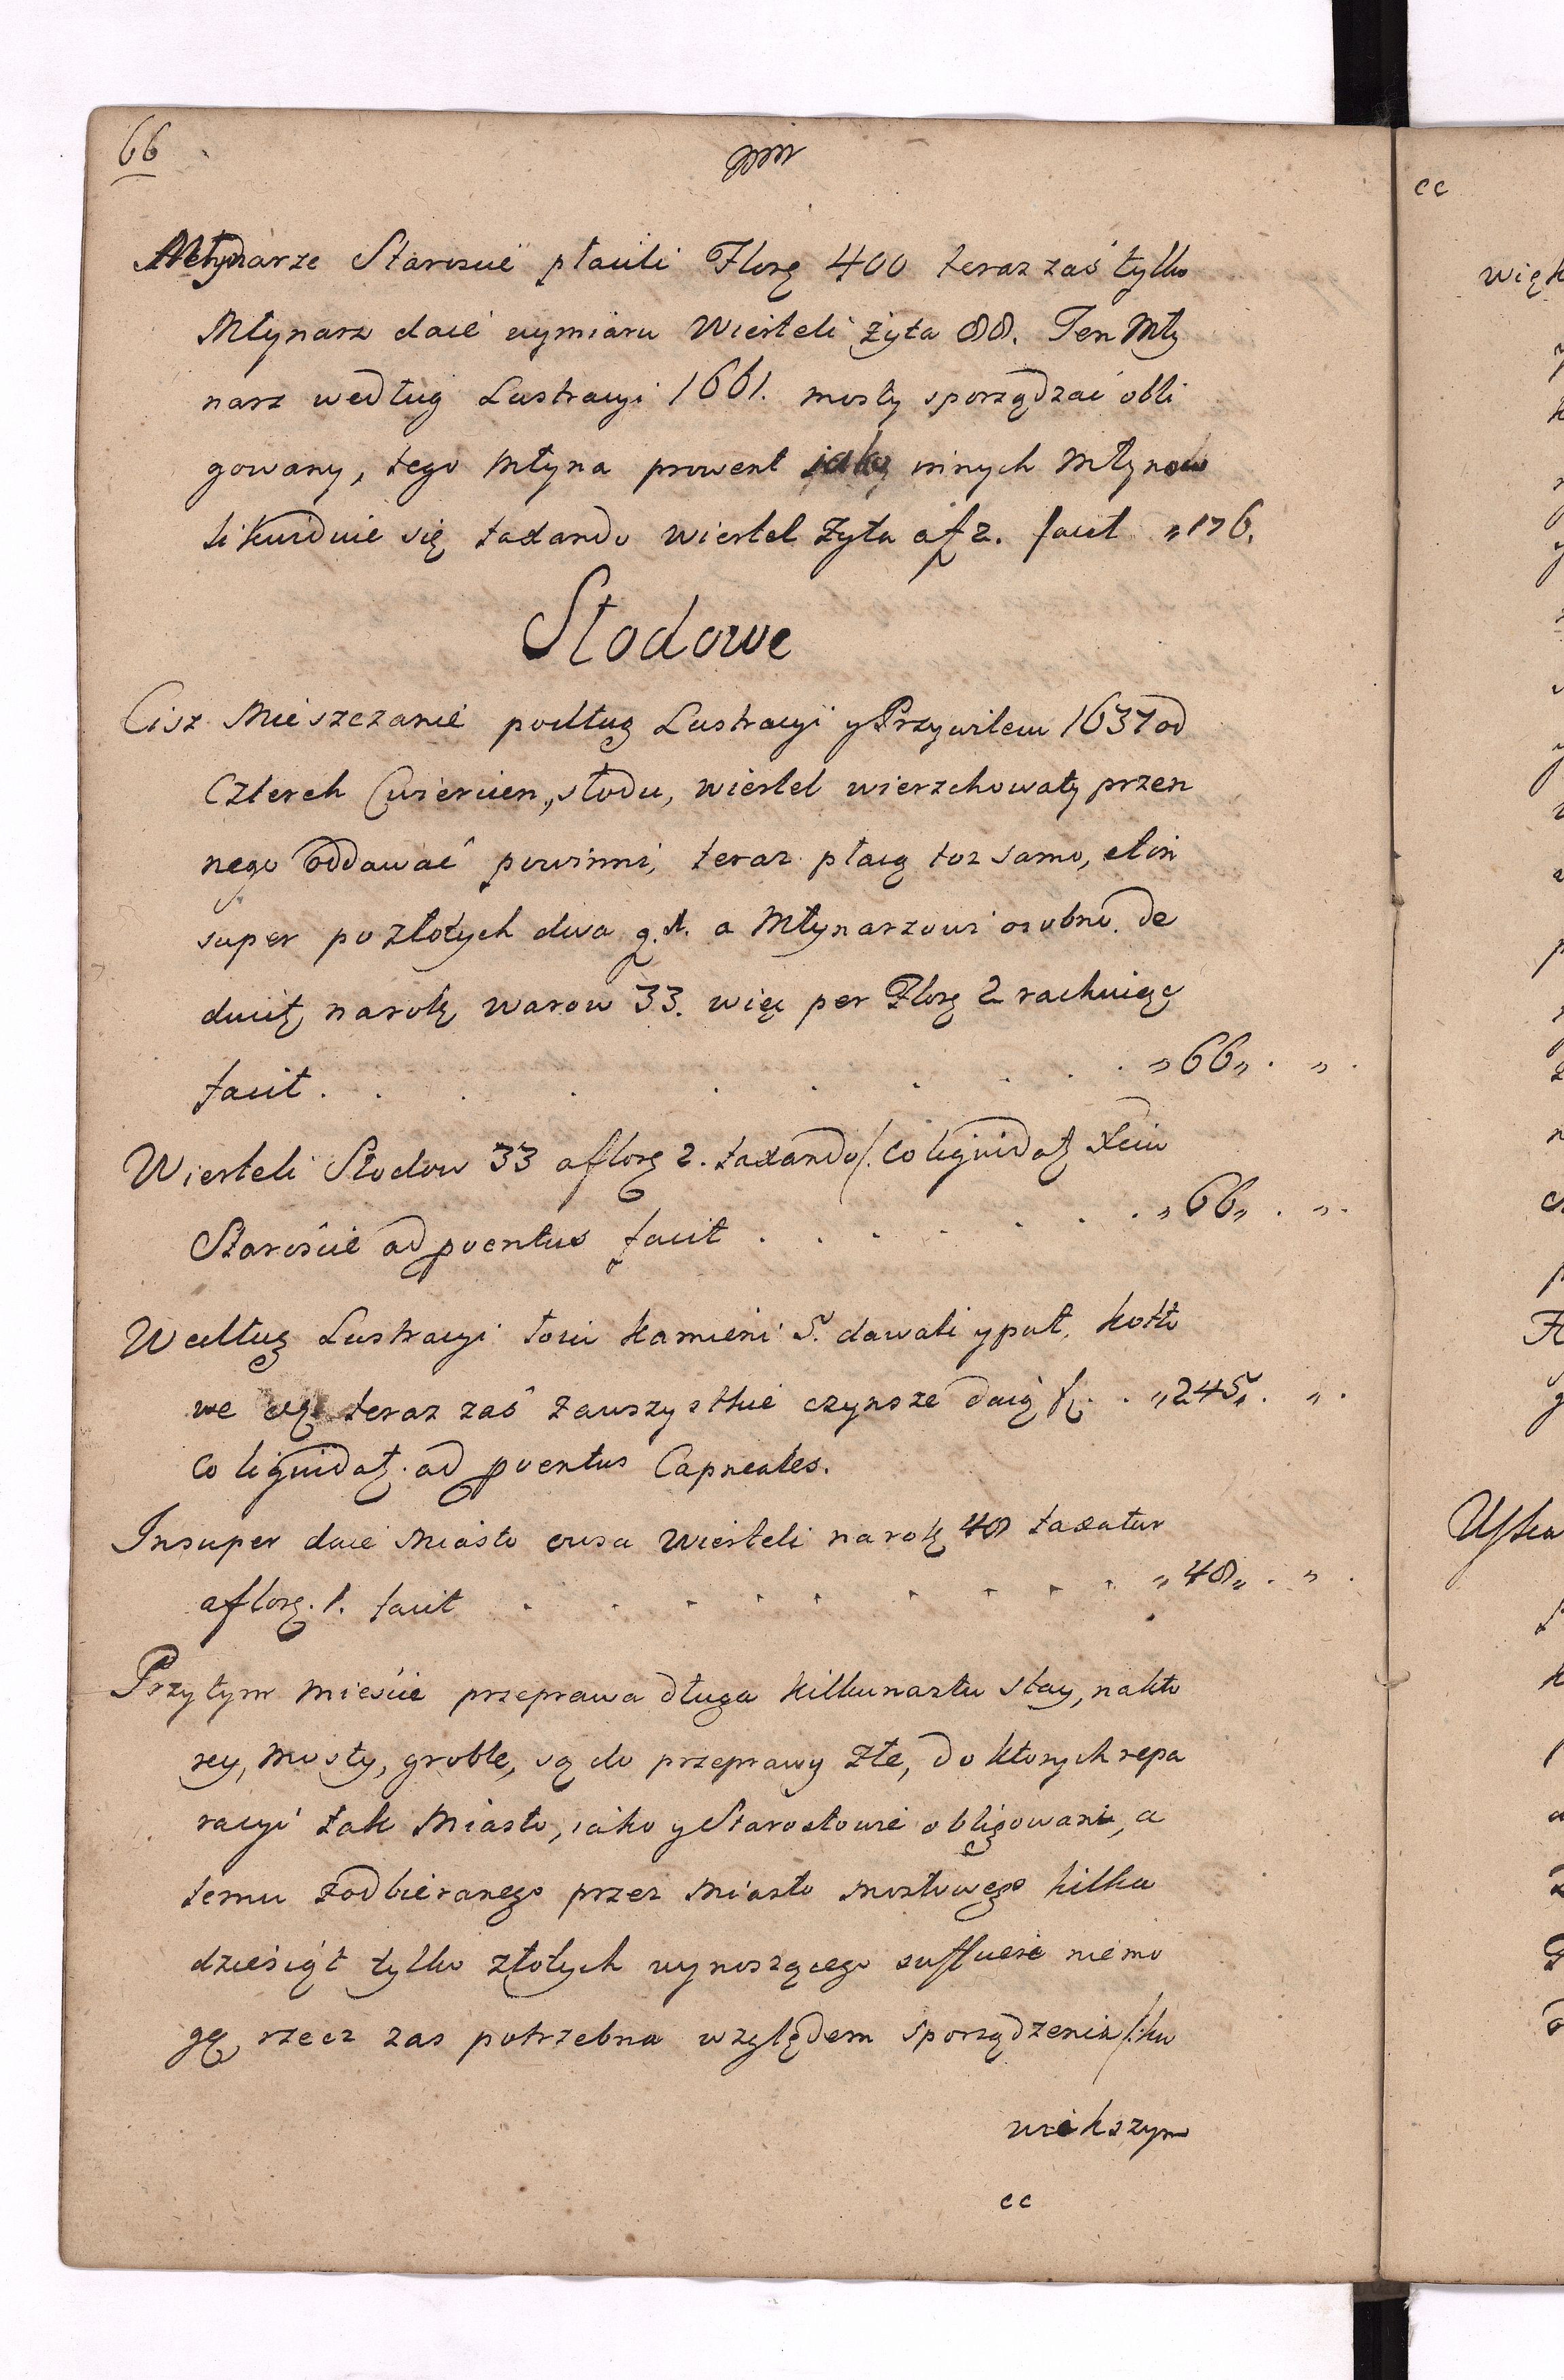 66
Młynarze Staroście płacili Florę 400 teraz zaś tylko
Młynarz daie wymiaru Wierteli żyta 88. Ten Mły
narz według Lustracyi 1661. mosty sporządzać obli
gowany, tego Młyna prowent jako innych Młynow
likwiduie się taxando wiertel żyta a f 2. facit „176.
Słodowe
Cisz Mieszczanie podług Lustracyi y Przywileiu 1637 od
Czterech Cwiercien„ słodu, wiertel wierzchowaty przen
nego oddawać powinni, teraz płacą toż samo, et in
super po złotych dwa g. d. a Młynarzowi osobno. De
ducitę na rok warow 33. więc per Florę 2 rachuięcę
facit . . . . . . . . . „66„ . „ .
Wierteli Słodow 33 a florę 2. taxando /. co liquidatę
Staroście ad pventus facit . . . . . . „66„ . „ .
Według Lustracyi łoiu kamieni 5. dawali y puł, kotło
we cię teraz zaś za wszystkie czynsze daią f. . „245„ . „ .
co liquidatę ad pventus Capneales.
Insuper daie Miasto owsa Wierteli na rok 48 taxatur
a florę. 1. facit . . . . . . . . „48„ . „ .
Przy tym mieście przeprawa długa kilkunastu stay, na kto
rey, mosty, groble, są do przeprawy złe, do ktorych repa
racyi tak Miasto, iako y Starostowie obligowani, a
temu z odbieranego przez Miasto mostowego kilku
dziesiąt tylko złotych wynoszącego sufficere niemo
gą, rzecz zas potrzebna względem sporządzenia /. ku
wiekszym
cc
cc